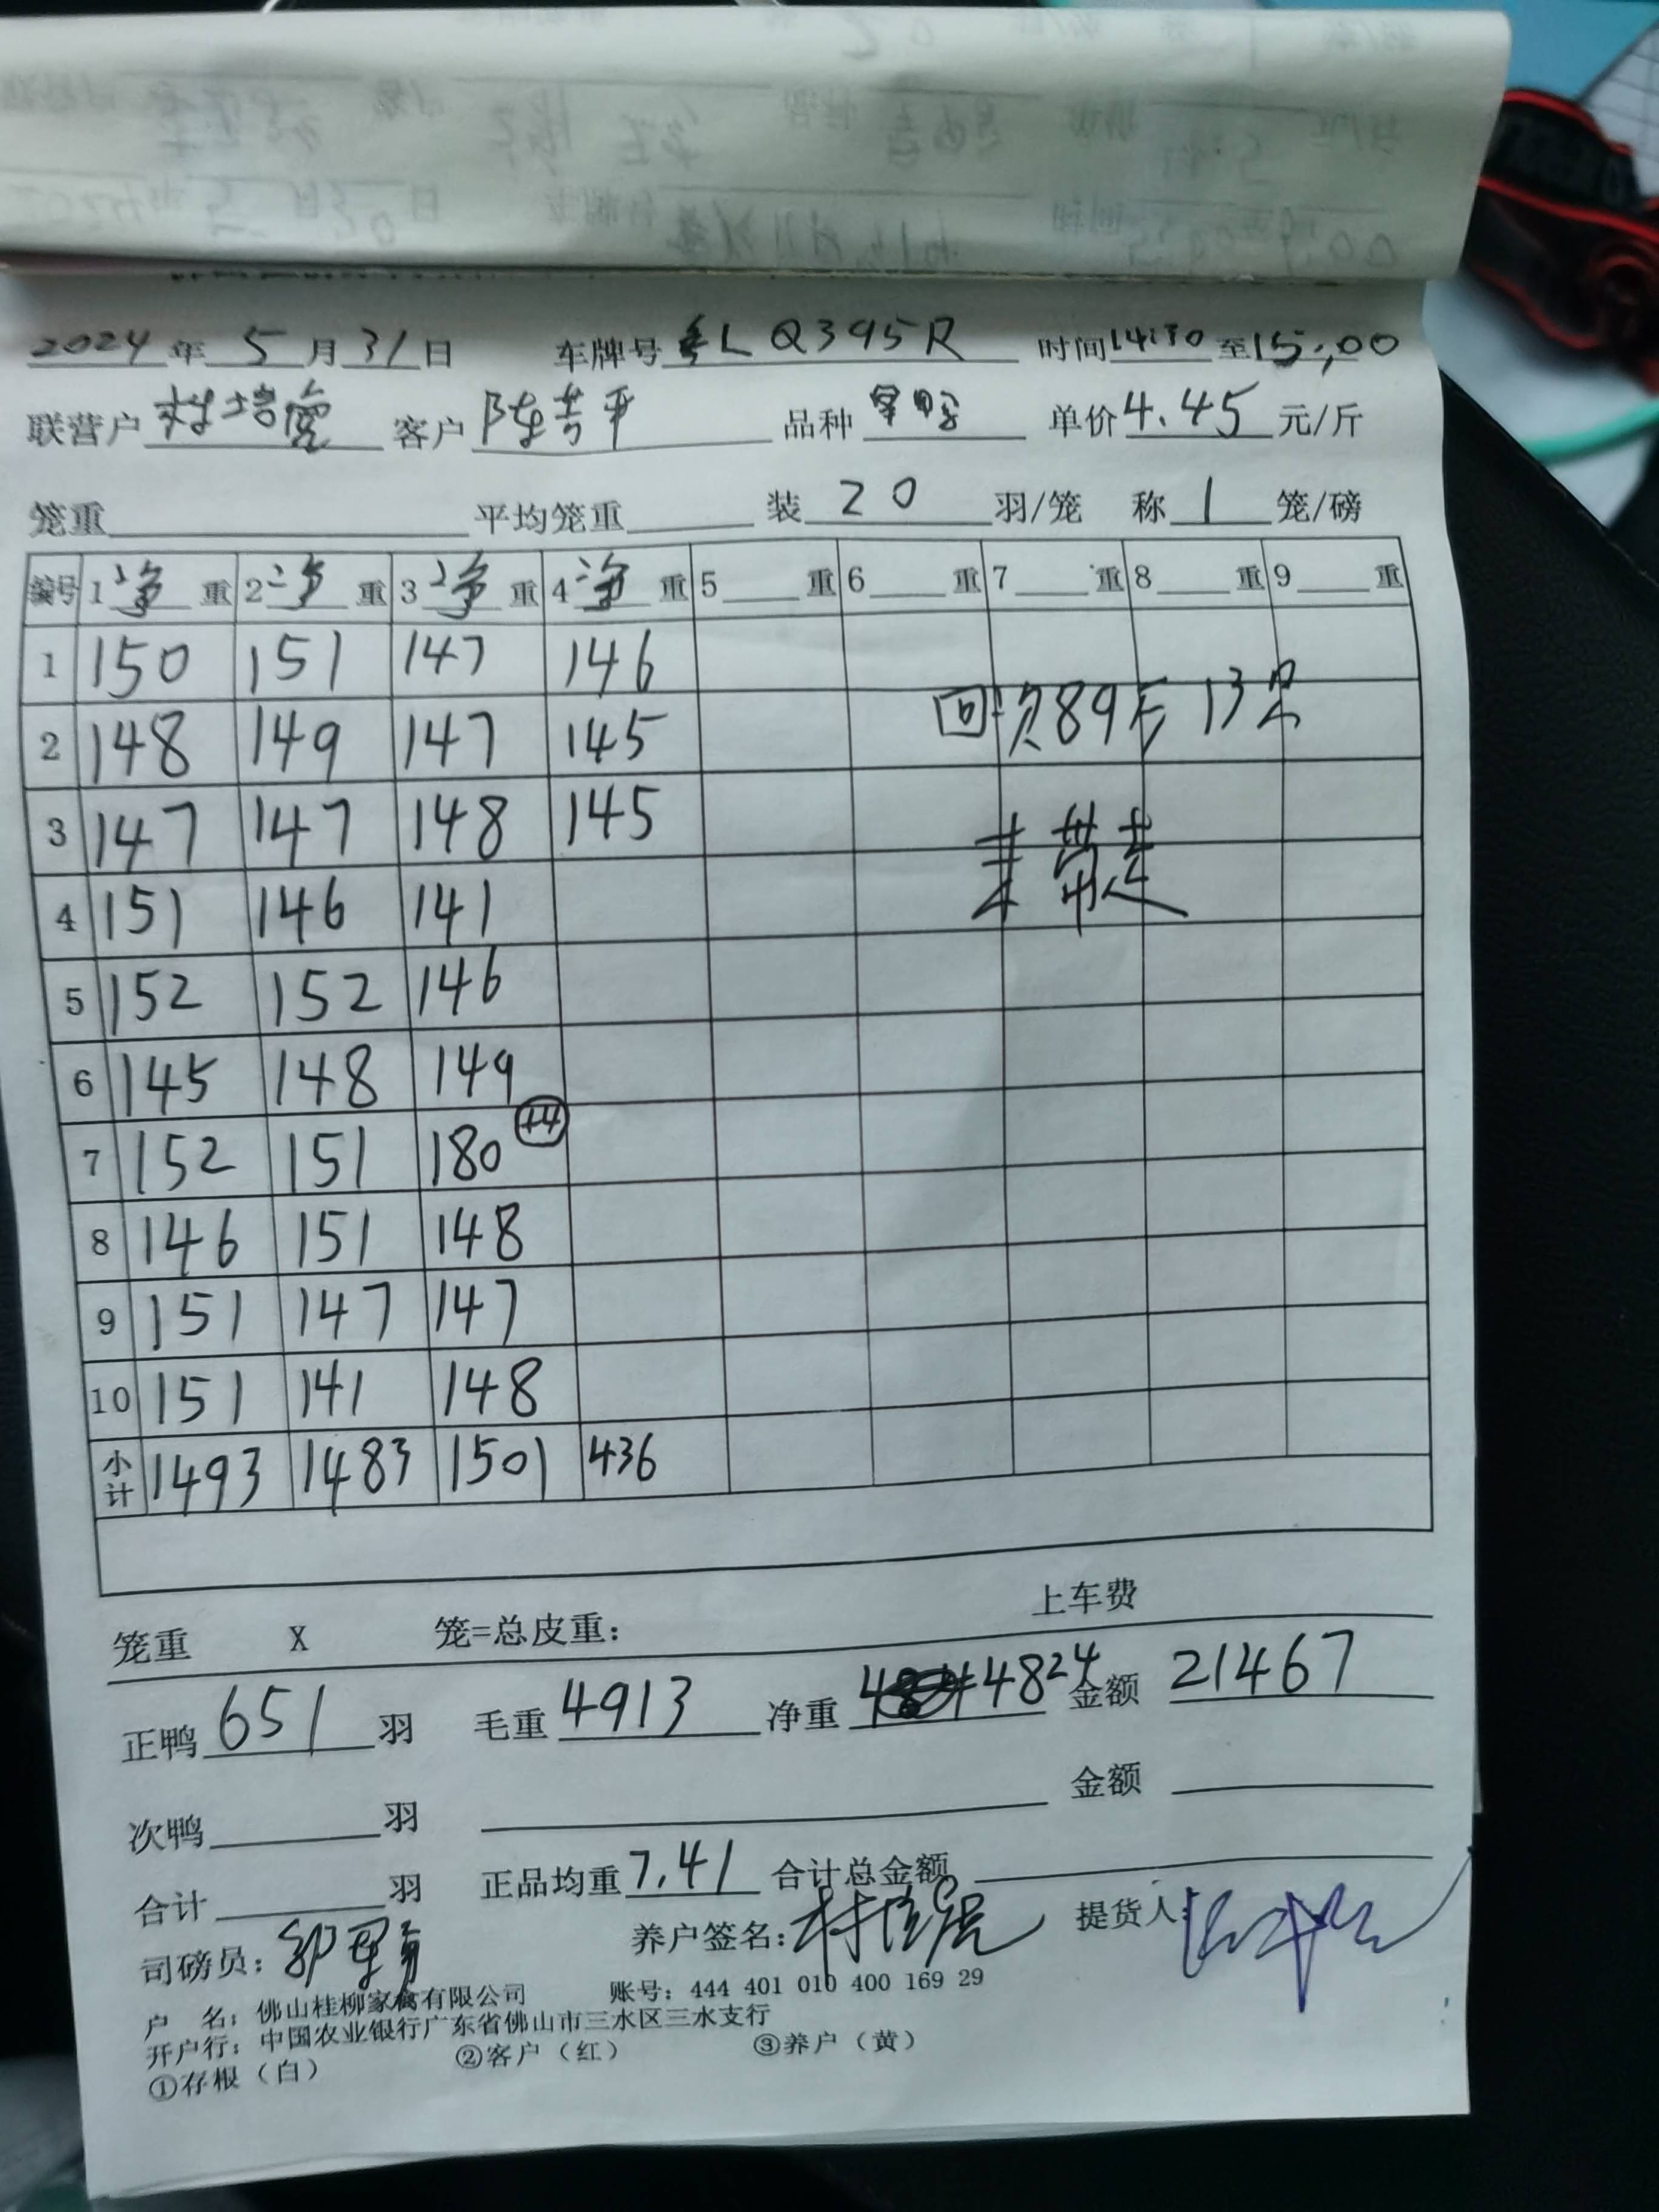 2024 年 5 月 31 日 车牌号 粤L Q395R 时间 14:30 至 15:00
联营户 林培 客户 陈芳平 品种 单价 4.45 元/斤
笼重 平均笼重 装 20 羽/笼 称 1 笼/磅
编号 1 净 重 2 净 重 3 净 重 4 净 重 5 重 6 重 7 重 8 重 9 重
1 150 151 147 146
2 148 149 147 145 回次89斤 13只
3 147 147 148 145 未带走
4 151 146 141
5 152 152 146
6 145 148 149
7 152 151 180 +4
8 146 151 148
9 151 147 147
10 151 141 148
小计 1493 1483 1501 436
上车费
笼重 X 笼=总皮重：
正鸭 651 羽 毛重 4913 净重 4824 金额 21467
次鸭 羽 金额
合计 羽 正品均重 7.41 合计总金额
司磅员： 养户签名： 提货人：
户 名：佛山桂柳家禽有限公司 账号：444 401 010 400 169 29
开户行：中国农业银行广东省佛山市三水区三水支行
①存根（白） ②客户（红） ③养户（黄）